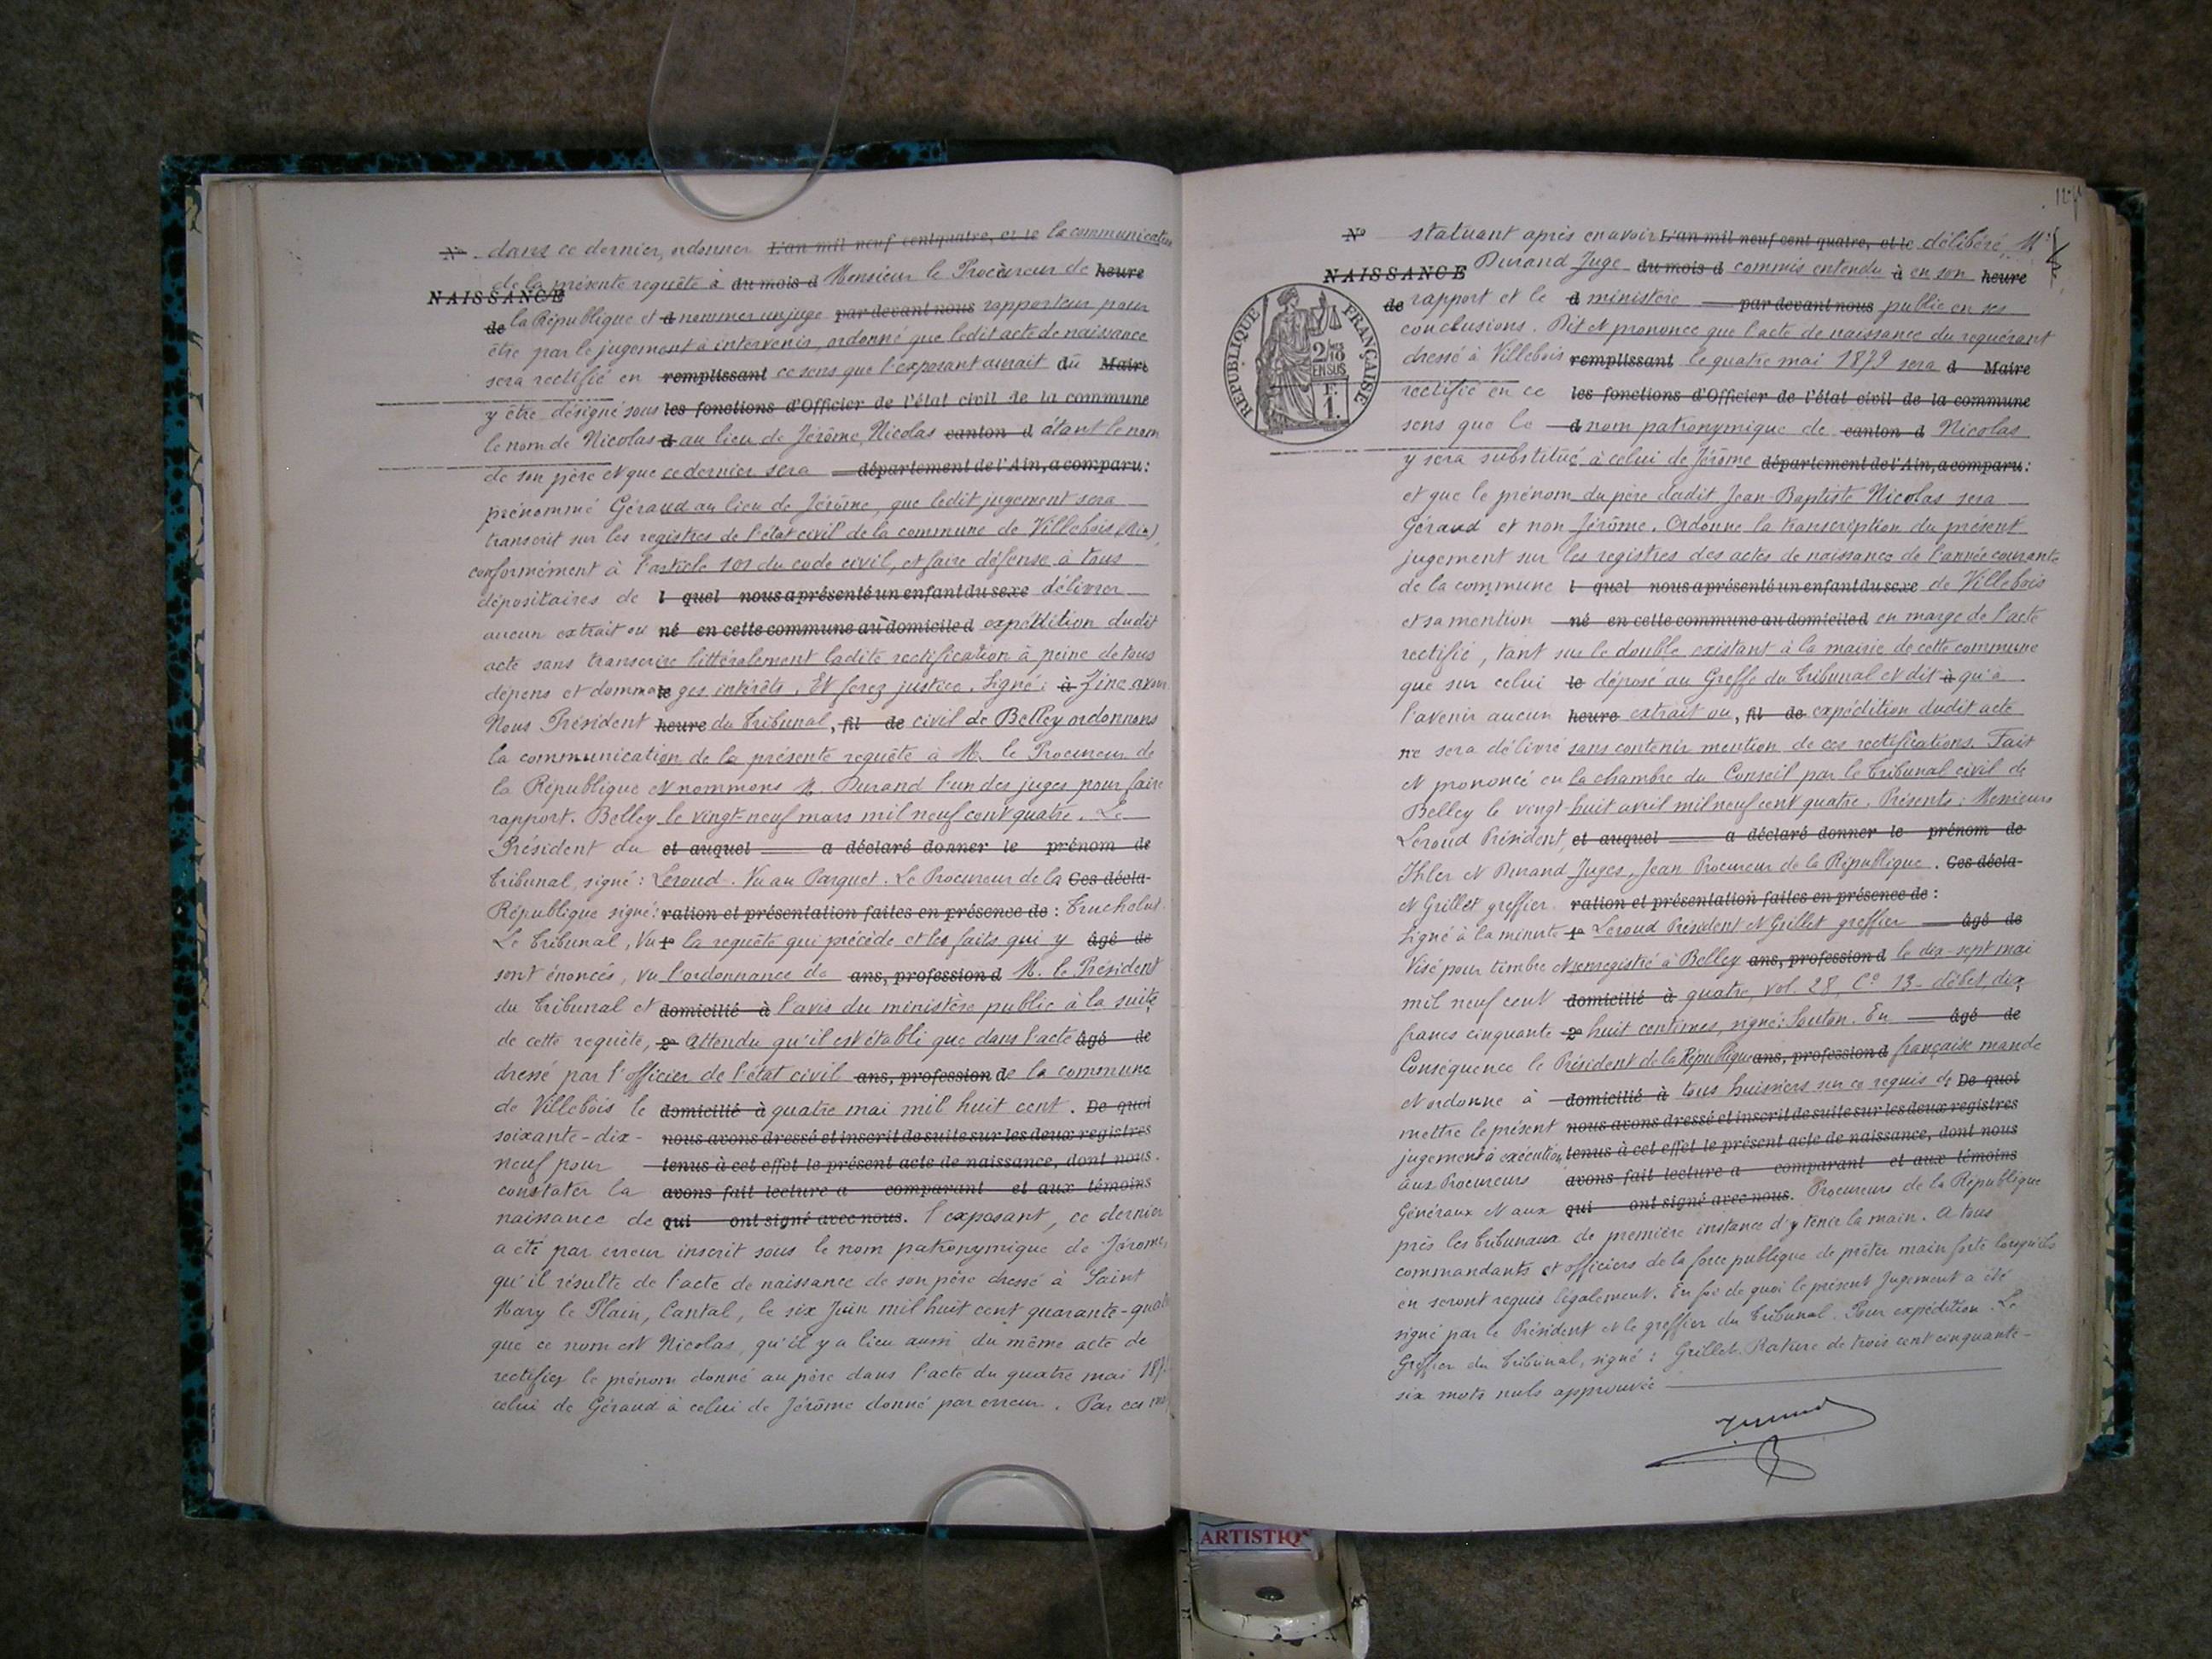 N° dans ce dernier, ordonner L'an mil neuf cent quatre, et le la communication
de la présente requête à du mois d Monsieur le Procureur de heure
NAISSANCE
de la République et d nommer un juge par devant nous rapporteur pour
être par le jugement à intervenir, ordonné que ledit acte de naissance
sera rectifié en remplissant ce sens que l'exposant aurait dû Maire
y être désigné sous les fonctions d'Officier de l'état civil de la commune
le nom de Nicolas d au lieu de Jérôme, Nicolas canton d étant le nom
de son père et que ce dernier sera département de l'Ain, a comparu:
prénommé Géraud au lieu de Jérôme, que ledit jugement sera
transcrit sur les registres de l'état civil de la commune de Villebois (Ain),
conformément à l'article 101 du code civil, et faire défense à tous
dépositaires de l quel nous a présenté un enfant du sexe délivrer
aucun extrait ou né en cette commune au domicile d expédition dudit
acte sans transcrire littéralement ladite rectification à peine de tous
dépens et domma le ges intérêts. Et ferez justice. Signé: à
Nous Président heure du Tribunal, fil de civil de Belley ordonnons
la communication de la présente requête à M. le Procureur de
la République et nommons M. Durand l'un des juges pour faire
rapport. Belley le vingt-neuf mars mil neuf cent quatre. Le
Président du et auquel a déclaré donner le prénom de
Tribunal, signé: Leroud. Vu au Parquet. Le Procureur de la Ces décla-
République signé: ration et présentation faites en présence de: Truchelut.
Le Tribunal, Vu 1° la requête qui précède et les faits qui y âgé de
sont énoncés, vu l'ordonnance de ans, profession d M. le Président
du Tribunal et domicilié à l'avis du ministère public à la suite
de cette requête, 2° Attendu qu'il est établi que dans l'acte âgé de
dressé par l'officier de l'état civil ans, profession de la commune
de Villebois le domicilié à quatre mai mil huit cent. De quoi
soixante-dix- nous avons dressé et inscrit de suite sur les deux registres
neuf pour tenus à cet effet le présent acte de naissance, dont nous
constater la avons fait lecture a comparant et aux témoins
naissance de qui ont signé avec nous. l'exposant, ce dernier
a été par erreur inscrit sous le nom patronymique de Jérome,
qu'il résulte de l'acte de naissance de son père dressé à Saint
Mary le Plain, Cantal, le six Juin mil huit cent quarante-quatre
que ce nom est Nicolas, qu'il y a lieu aussi du même acte de
rectifier le prénom donné au père dans l'acte du quatre mai 187
celui de Géraud à celui de Jérôme donné par erreur. Par ces
N° statuant après en avoir L'an mil neuf cent quatre, et le délibéré, Mr
NAISSANCE Durand Juge du mois d commis entendu à en son heure
de rapport et le d ministère par devant nous public en ses
conclusions. Dit et prononce que l'acte de naissance du requérant
dressé à Villebois remplissant le quatre mai 1879 sera d Maire
rectifié en ce les fonctions d'Officier de l'état civil de la commune
sens que le d nom patronymique de canton d Nicolas
y sera substitué à celui de Jérôme département de l'Ain, a comparu:
et que le prénom du père dudit Jean-Baptiste Nicolas sera
Géraud et non Jérôme. Ordonne la transcription du présent
jugement sur les registres des actes de naissance de l'année courante
de la commune l quel nous a présenté un enfant du sexe de Villebois
et sa mention né en cette commune au domicile d en marge de l'acte
rectifié, tant sur le double existant à la mairie de cette commune
que sur celui le déposé au Greffe du Tribunal et dit à qu'à
l'avenir aucun heure extrait ou, fil de expédition dudit acte
ne sera délivré sans contenir mention de ces rectifications. Fait
et prononcé en la chambre du Conseil par le Tribunal civil de
Belley le vingt-huit avril mil neuf cent quatre. Présents: Messieurs
Leroud Président, et auquel a déclaré donner le prénom de
Ihler et Durand Juges, Jean Procureur de la République. Ces décla-
et Grillet greffier. ration et présentation faites en présence de:
Signé à la minute 1° Leroud Président et Grillet greffier âgé de
Visé pour timbre et enregistré à Belley ans, profession d le dix-sept mai
mil neuf cent domicilié à quatre, vol. 28, C° 13. débet, dix
francs cinquante 2° huit centimes, signé: Souton. En âgé de
Conséquence le Président de la République ans, profession d française mande
et ordonne à domicilié à tous huissiers sur ce requis de De quoi
mettre le présent nous avons dressé et inscrit de suite sur les deux registres
jugement à exécution tenus à cet effet le présent acte de naissance, dont nous
aux Procureurs avons fait lecture a comparant et aux témoins
Généraux et aux qui ont signé avec nous. Procureurs de la République
près les tribunaux de première instance d'y tenir la main. A tous
commandants et officiers de la force publique de prêter main forte lorsqu'ils
en seront requis légalement. En foi de quoi le présent Jugement a été
signé par le Président et le greffier du Tribunal. Pour expédition. Le
Greffier du Tribunal, signé: Grillet. Rature de trois cent cinquante-
six mots nuls approuvée
RÉPUBLIQUE FRANÇAISE
2/10 EN SUS
F. 1.
ARTISTIQ